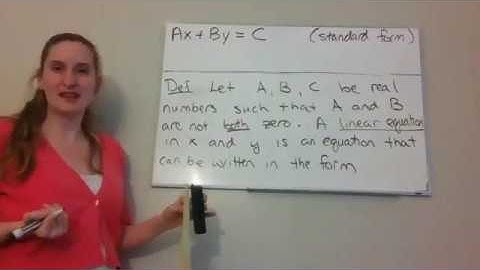 Ax + By = C (standard form)
Def Let A, B, C be real
numbers such that A and B
are not both zero. A linear equation
in x and y is an equation that
can be written in the form